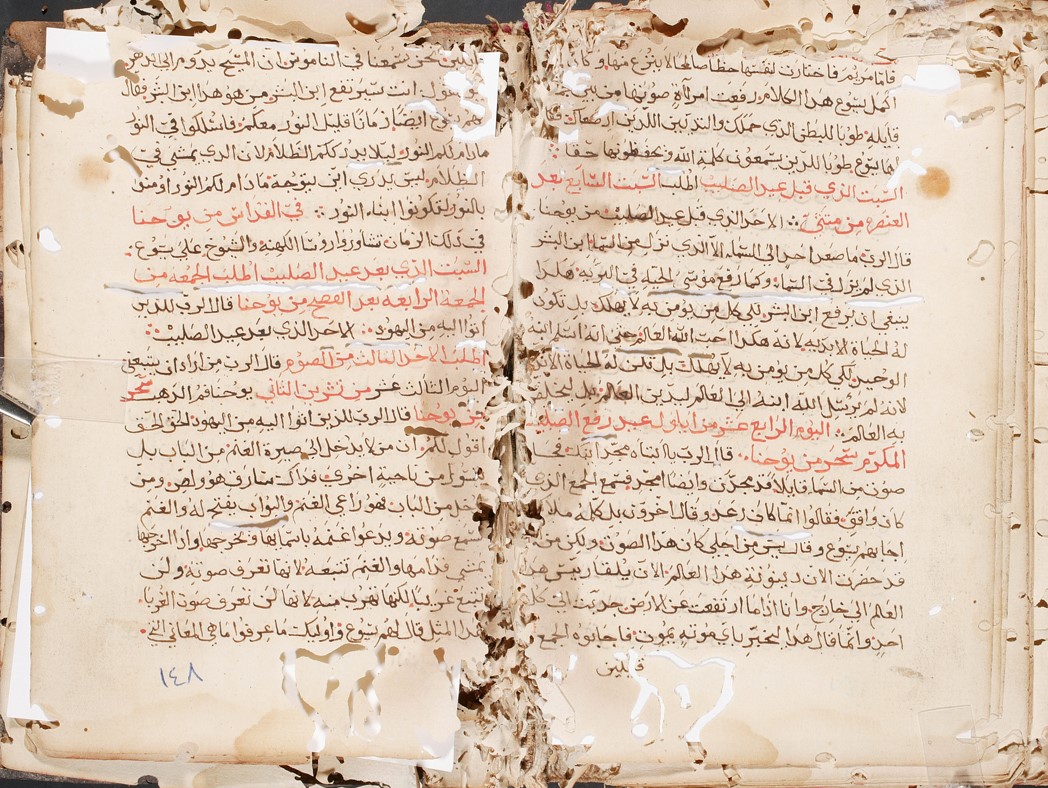 فاما مريم فاختارت لنفسها حظا صالحا لا ينزع منها وكان
اكمل يسوع هدا الكلام رفعت امرآة صوتها من بين
قايله طوبا للبطن الدي حملك والتديين اللدين ارضعاك
هما يسوع طوبا للدين يسمعون كلمة الله ويحفظونها حقا
السبت الذي قبل عيد الصليب اطلب السبت السابع بعد
العنصره من متى الاحد الدي قبل عيد الصليب من يوحنا
قال الرب ما صعد احد الى السما الا الدي نزل من السما ابن البشر
الدي لم يزل في السما وكما رفع موسى الحيه في البريه هكدا
ينبغي ان يرفع ابن البشر لكي كل من يومن به لا يهلك بل تكون
له الحياة الابديه لانه هكدا احب الله العالم حتى انه اسلم ابنه
الوحيد لكي كل من يومن به لا يهلك بل تكن له الحياة
لانه لم يرسل الله ابنه الى العالم ليدين العالم بل ليخلص
به العالم اليوم الرابع عشر من ايلول عيد رفع الصليب
المكرم سحر من يوحنا قال الرب يا ابتاه مجد ابنك فجا
صوت من السما قايلا قد مجدت وايضا امجد فسمع الجمع الدي
كان واقف فقالوا انما كان رعد وقال اخرون بل كلمه ملاك
اجابهم يسوع وقال ليس من اجلي كان هدا الصوت ولكن من
قد حضرت الان دينونة هدا العالم الان يلقا رييس هدا
العالم الى خارج وانا ادا ما ارتفعت عن الارض جدبت الى كل
احد وانما قال هدا ليخبر باي موته يموت فاجابوه الجمع
قايلين
قايلين نحن سمعنا في الناموس ان المسيح يدوم الى
تقول انت سيرتفع ابن البشر من هو هدا ابن البشر فقال
لهم يسوع ايضا زمانا قليل النور معكم فاسلكوا في النور
مادام لكم النور ليلا يدرككم الظلام لان الدي يمشي في
الظلام ليس يدري اين يتوجه مادام لكم النور اومنوا
بالنور لتكونوا ابناء النور في القداس من يوحنا
في دلك الزمان تشاوروا روسا الكهنه والشيوخ على يسوع
السبت الذي بعد عيد الصليب اطلب الجمعه من
الجمعة الرابعه بعد الفصح من يوحنا قال الرب للدين
آتوا اليه من اليهود الاحد الدي بعد عيد الصليب
اطلب الاحد الثالث من الصوم قال الرب من اراد ان يتبعني
اليوم الثالث عشر من تشرين الثاني يوحنا فم الدهب سحر
من يوحنا قال الرب للدين اتوا اليه من اليهود الحق الحق
اقول لكم ان من لا يدخل الى صيرة الغنم من الباب بل
يتسول من ناحية اخرى فداك سارق هو ولص ومن
يدخل من الباب فهو راعي الغنم والبواب يفتح له والغنم
تسمع صوته ويدعوا غنمه باسمايها فيخرجها وادا اخرجها
يمشي قدامها والغنم تتبعه لانها تعرف صوته ولن
تتبع غريبا لكنها تهرب منه لانها لن تعرف صوت الغربا
هدا المثل قال لهم يسوع واوليك ما عرفوا ما هي المعاني التي
١٤٨